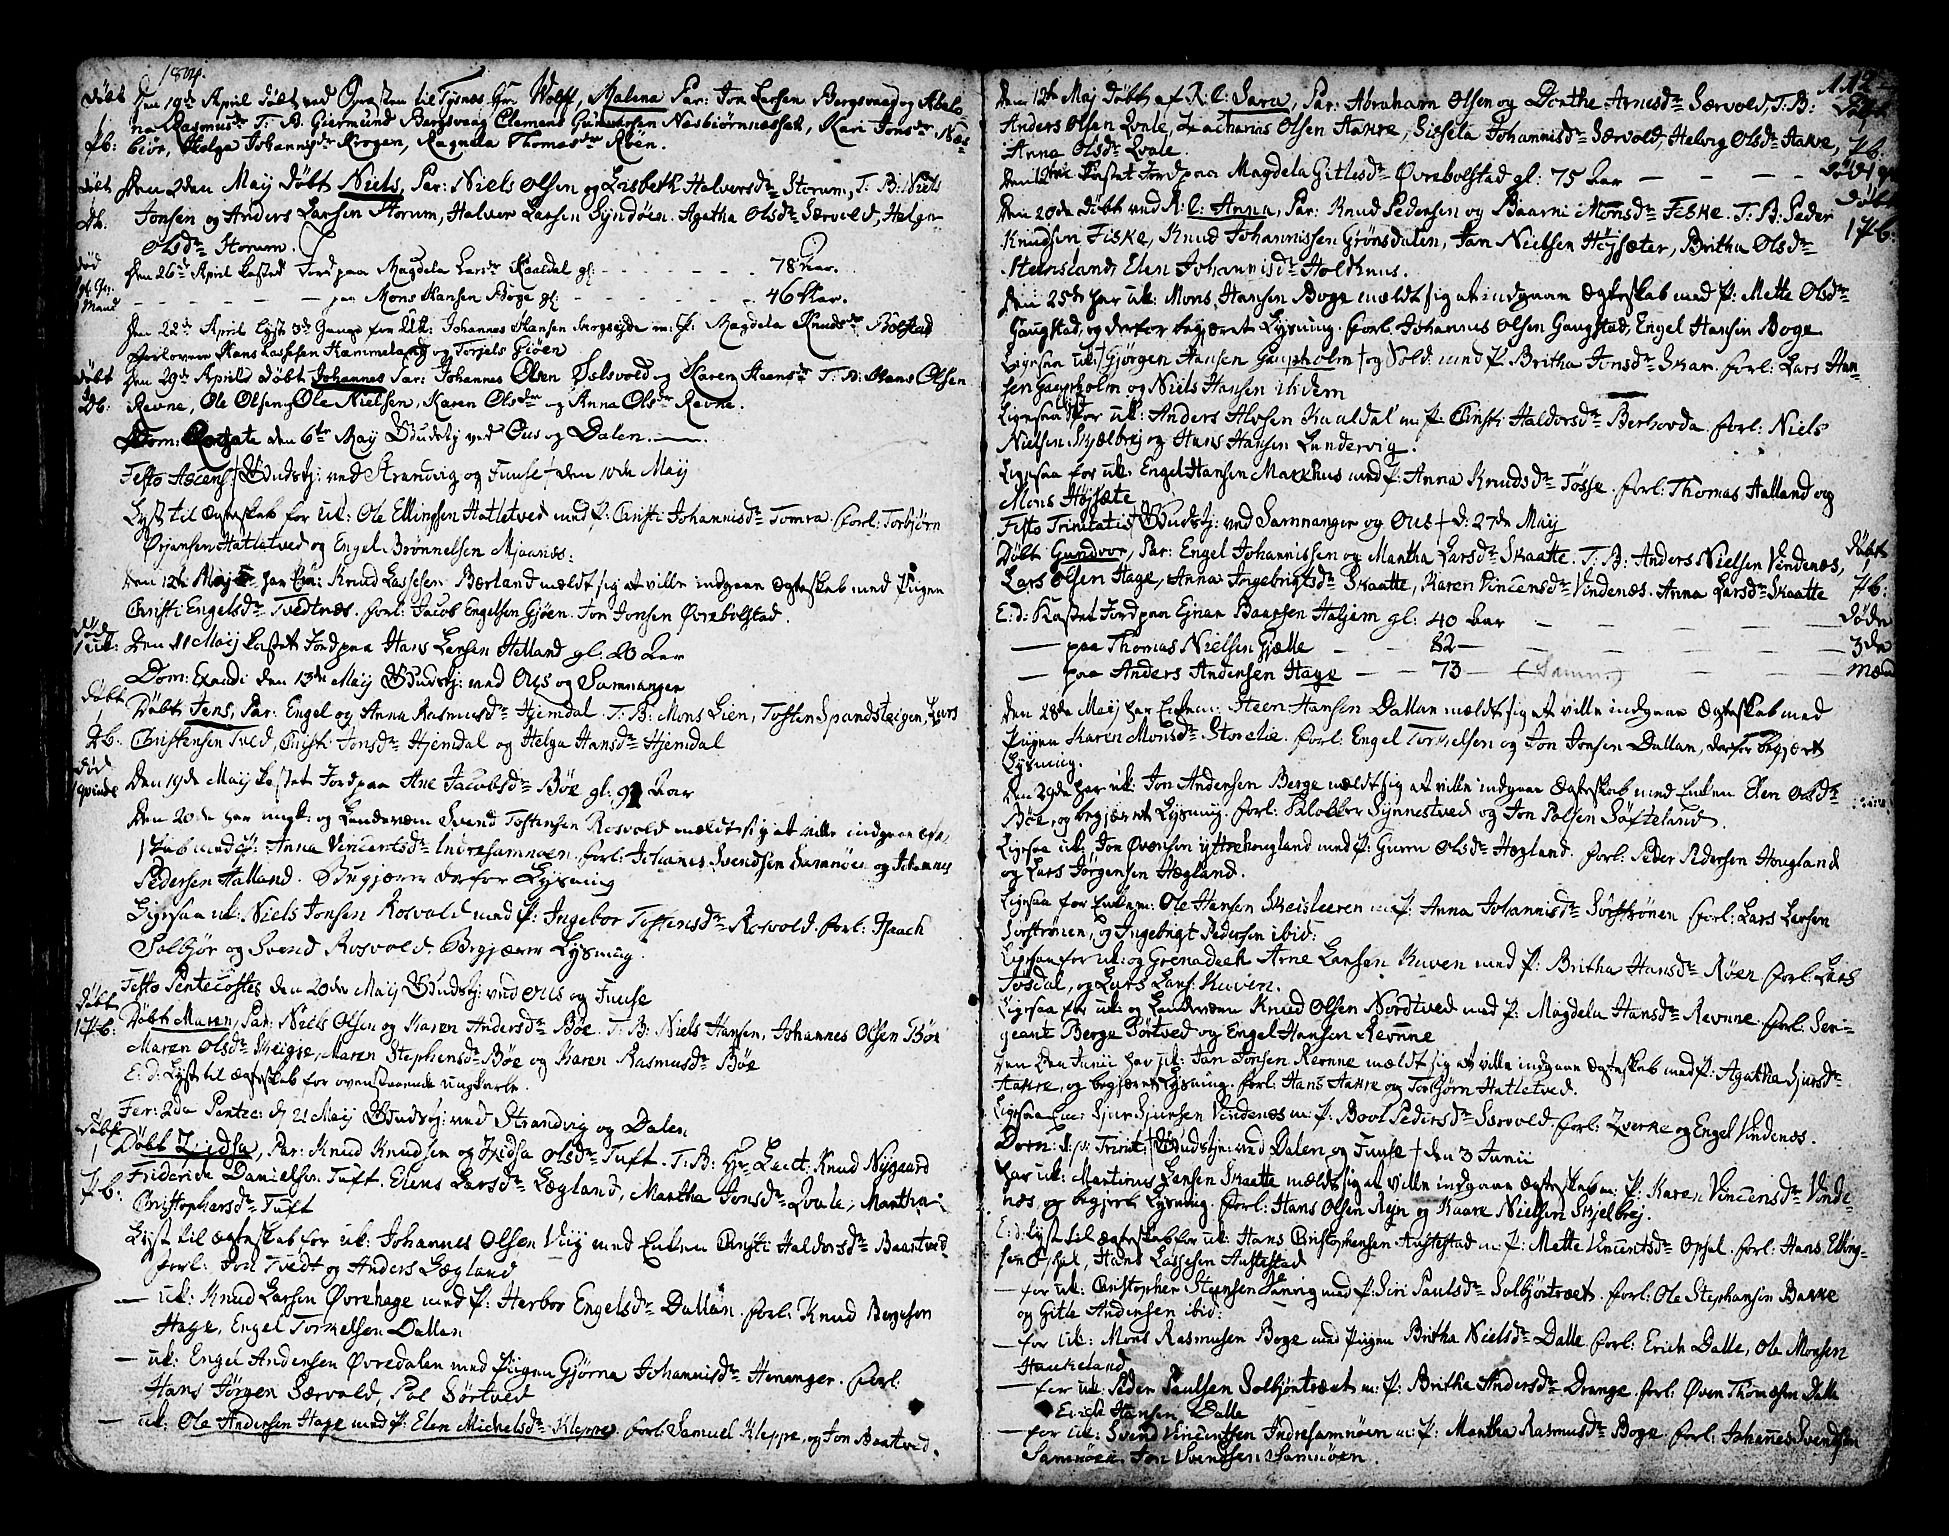 1804.
døbt Den 19de April døbt ved Ørasten til Tysnes Hr Wolff, Malena Par: Jon Larsen Bergsvaag og Abelo-
1 na Rasmusdr T. B. Giermund Bergsvaag Clemens Nasbiørnnesset, Kari Jonsdr Næs-
Pb: biør, Helga Johannisdr Krogen, Ragnela Thomasdr Røen.
døbt Den 2den Maij døbt Niels, Par: Niels Olsen og Lisbeth Halversdr Storum, T. B: Niels
Db: Jonsen og Anders Larsen Storum, Halver Larsen Syndøen. Agatha Olsdr Særvold, Helge
Olsdr Storum.
død Den 26de April kasted Jord paa Magdela Larsdr Kaaldal gl: - - - 78 Aar.
1 Mand - - - paa Mons Hansen Boge gl: - - - 46 Aar.
Den 22de April lyst 3de Gange for Uk: Johannes Hansen Bergseide m: P: Magdela Knudsdr Bolstad
forlovere Hans Lassesen Hammeland og Torgels Giøen
døbt Den 29de Aprilis døbt Johannes Par: Johannes Olsen Øvlsvold og Karen Steensdr T. B: Hans Olsen
Db: Revne, Ole Olsen, Ole Nielsen, Karen Olsdr og Anna Olsdr Revne.
Dom: Rogate den 6te Maij Gudstj: ved Ous og Dalen.
Festo Ascens: Gudstj: ved Strandvig og Fuuse den 10de Maij
Lyst til Ægteskab for Uk: Ole Ellingsen Hatletved med P: Christi Johannisdr Tomra forl: Torbjørn
Ørjansen Hatletved og Engel Brønnelsen Mjaanæs:
Den 12te Maij har Uk: Knud Lassesen Børland meldt sig at ville indgaae Ægteskab med Pigen
Christi Engelsdr Tvedtnæs. forl: Jacob Engelsen Gjøen. Jon Jonsen Øvrebølstad.
død
1 uk: Den 11 Maij kastet Jord paa Hans Larsen Helland gl: 20 Aar
Dom: Exaudi den 13de Maij Gudstj: ved Ous og Samnanger
døbt
1 Døbt Jens, Par: Engel og Anna Rasmusdr Hjemdal T. B: Mons Lien, Tosten Spandsteigen, Lars
Db. Christensen Tved, Christi Jonsdr Hjemdal og Helga Hansdr Hjemdal
død
1 qvinde Den 19de Maij kastet Jord paa Ane Jacobsdr Bøe gl: 91 Aar
Den 20de har ungk: og Landevern Svend Tostensen Rosvold meldt sig at ville indgaae Ægte-
skab med P: Anna Vincentsdr Indresamnøen, forl: Johannes Svendsen Samnøen og Johannes
Pedersen Halland. Begjærer derfor Lysning
Ligesaa uk: Niels Jonsen Rosvold med P: Ingebor Tostensdr Rosvold. forl: Isaach
Solbjør og Svend Rosvold. Begjærer Lysning.
Festo Pentecostes den 20de Maij Gudstj: ved Ous og Fuuse
døbt
1 Pb: Døbt Maren, Par: Niels Olsen og Karen Andersdr Bøe. T: B: Niels Hansen, Johannes Olsen Bøe
Maren Olsdr Skeigie, Maren Stephensdr Bøe og Karen Rasmusdr Bøe
E: d: Lyst til Ægteskab for ovenstaaende ungkarle.
Fer: 2da Pentec: d: 21 Maij Gudstj: ved Strandvig og Dalen
døbt
1 Døbt Zidsa, Par: Knud Knudsen og Zidsa Olsdr Tuft. T: B: Hr Lieut: Knud Nygaard
Pb: Friderich Danielsen Tuft. Elens Larsdr Lægland, Martha Jonsdr Qvale, Martha
Christophersdr Tuft
Lyst til Ægteskab for uk: Johannes Olsen Viig med Enken Christi Haldorsdr Baartved
forl: Jon Tvedt og Anders Lægland
— uk: Knud Larsen Øvrehage med P: Herbor Engelsdr Dallan. forl: Knud Bergeson
Hage, Engel Torkelsen Dallan
— uk: Engel Andersen Øvredalen med Pigen Gjørna Johannisdr Hananger. forl:
Hans Jørgen Særvold, Pol Sørtved
— uk: Ole Andersen Hage med P: Elen Michelsdr Kleppe. forl: Samuel Kleppe, og Jon Baatved.
112
Den 12te Maj døbt af R: C: Sara, Par: Abraham Olsen og Dorthe Arnesdr Særvold, T. B: Døbt
Anders Olsen Qvale, Zacharias Olsen Hakre, Sissela Johannisdr Særvold, Helvig Olsdr Hakre, 1 Pb:
Anna Olsdr Qvale.
Den 12te kastet Jord paa Magdela Gitlesdr Øvrebolstad gl: 75 Aar — — — død 1 qv
Den 20de døbt ved R: C: Anna, Par: Knud Pedersen og Baarni Monsdr Fiske. T. B: Peder døbt
Knudsen Fiske, Knud Johannissen Grønsdalen, Jan Nielsen Høysæter, Britha Olsdr 1 Pb:
Steinsland, Elen Johannisdr Holdhuus.
Den 25de har uk: Mons Hansen Boge meldt sig at indgaae Ægteskab med P: Mette Olsdr
Gaugstad, og derfor begjæret Lysning. forl. Johannes Olsen Gaugstad, Engel Hansen Boge
Ligesaa uk: Gjørgen Hansen Gaupholm og Sold: med P: Britha Jonsdr Skar. forl: Lars Han-
sen Gaupholm og Niels Hansen ibidem
Ligesaa for uk: Anders Alvsen Kaaldal m: P: Christi Haldorsdr Berhovda. forl: Niels
Nielsen Skjælbrej og Hans Hansen Lundervig.
Ligesaa for uk: Engel Hansen Makkhus med P: Anna Knudsdr Tøsse. forl: Thomas Halland og
Mons Høysæte
Festo Trinitatis Gudstj: ved Samnanger og Ous d: 27de Maij
Døbt Gundvor, Par: Engel Johannissen og Martha Larsdr Skaatte. T. B: Anders Nielsen Vindenæs, døbt 1
Lars Olsen Hage, Anna Ingebrigtsdr Skaatte, Karen Vincensdr Vindenæs. Anna Larsdr Skaatte Pb:
E: d: Kastet Jord paa Ejnar Baarsen Haljem gl: 40 Aar — — — døde
— paa Thomas Nielsen Gjelle — — 82 — — — 3de
— paa Anders Andersen Hage — — 73 — (Samn:) — — Mænd
Den 28de Maij har Enkem: Steen Hansen Dallan meldt sig at ville indgaae Ægteskab med
Pigen Karen Monsdr Storelie. forl: Engel Torkelsen og Jon Jonsen Dallan, derfor begjært
Lysning.
Den 29de har uk: Jon Andersen Berge meldt sig at ville indgaae Ægteskab med Enken Elen Olsdr
Bøe, og begjæret Lysning. forl: Flokker Synnestved og Jon Polsen Søfteland.
Ligesaa uk: Jon Øvenson yttrehougland med P: Guren Olsdr Hægland. forl: Peder Pedersen Hougland
og Lars Jørgensen Hægland.
Ligesaa for Enkem: Ole Hansen Skeisleeren m P: Anna Johannisdr Sørstrønen forl: Lars Larsen
Sørstrønen, og Ingebrigt Pedersen ibid:
Ligesaa for uk: og Grenadeer Arne Larsen Kuven med P: Britha Hansdr Røen forl: Lars
Tøsdal, og Lars Lars: Kuven.
Ligesaa for uk: og Landevern Knud Olsen Nordtved med P: Magdela Hansdr Revnne. forl: Seri-
geant Berge Børtved og Engel Hansen Revnne
Den 2den Junii har uk: Jan Jonsen Revnne meldt sig at ville indgaae Ægteskab med P: Agatha Sjursdr
Hakre, og begjæret Lysning. forl: Hans Hakre og Torbjørn Hatletved.
Ligesaa Sjur Sjursen Vindenæs m: P: Boel Pedersdr Særvold. forl: Zverke og Engel Vindenæs.
Dom: 1 p: Trinit: Gudstj: ved Dalen og Fuuse den 3 Junii
har uk: Martinus Jensen Skaatte meldt sig at ville indgaae Ægteskab m: P: Karen Vincensdr Vinde-
næs og begjert Lysning. forl: Hans Olsen Røjn og Kaare Nielsen Skjelbrej.
E: d: lyst til Ægteskab for uk: Hans Christophersen Austestad m: P: Mette Vincentsdr Opsal. forl: Hans Elling-
sen Opsal, Hans Lassesen Austestad
— for uk: Christopher Steensen Vaavig med P: Siri Paulsdr Solbjørtræet. forl: Ole Stephansen Bakke
og Gitle Andersen ibid:
— for uk: Mons Rasmusen Boge med Pigen Britha Nielsdr Dalle forl: Erich Dalle, Ole Monsen
Haukeland
— for uk: Peder Paulsen Solbjørtræet m: P: Britha Andersdr Drange. forl: Øven Thomæsen Dalle
Erich Hansen Dalle
— for uk: Svend Vincentsen Indresamnøen m: P: Martha Rasmusdr Boge forl: Johannes Svendsen
Samnøen. Jon Svendsen Samnøen.